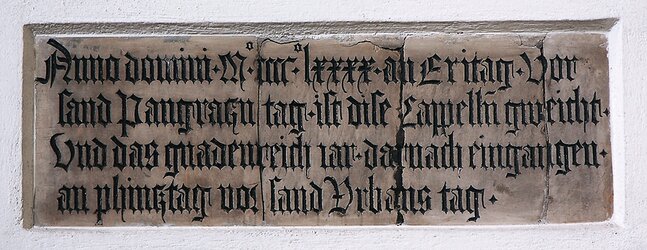 Anno domini · M° ccc° lxxxx · an Eritag · Vor
sand Pangraczn tag · ist dise Cappelln gweicht ·
Vnd das gnadenreich iar · darnach eingangen ·
an phincztag vor sand Vrbans tag ·